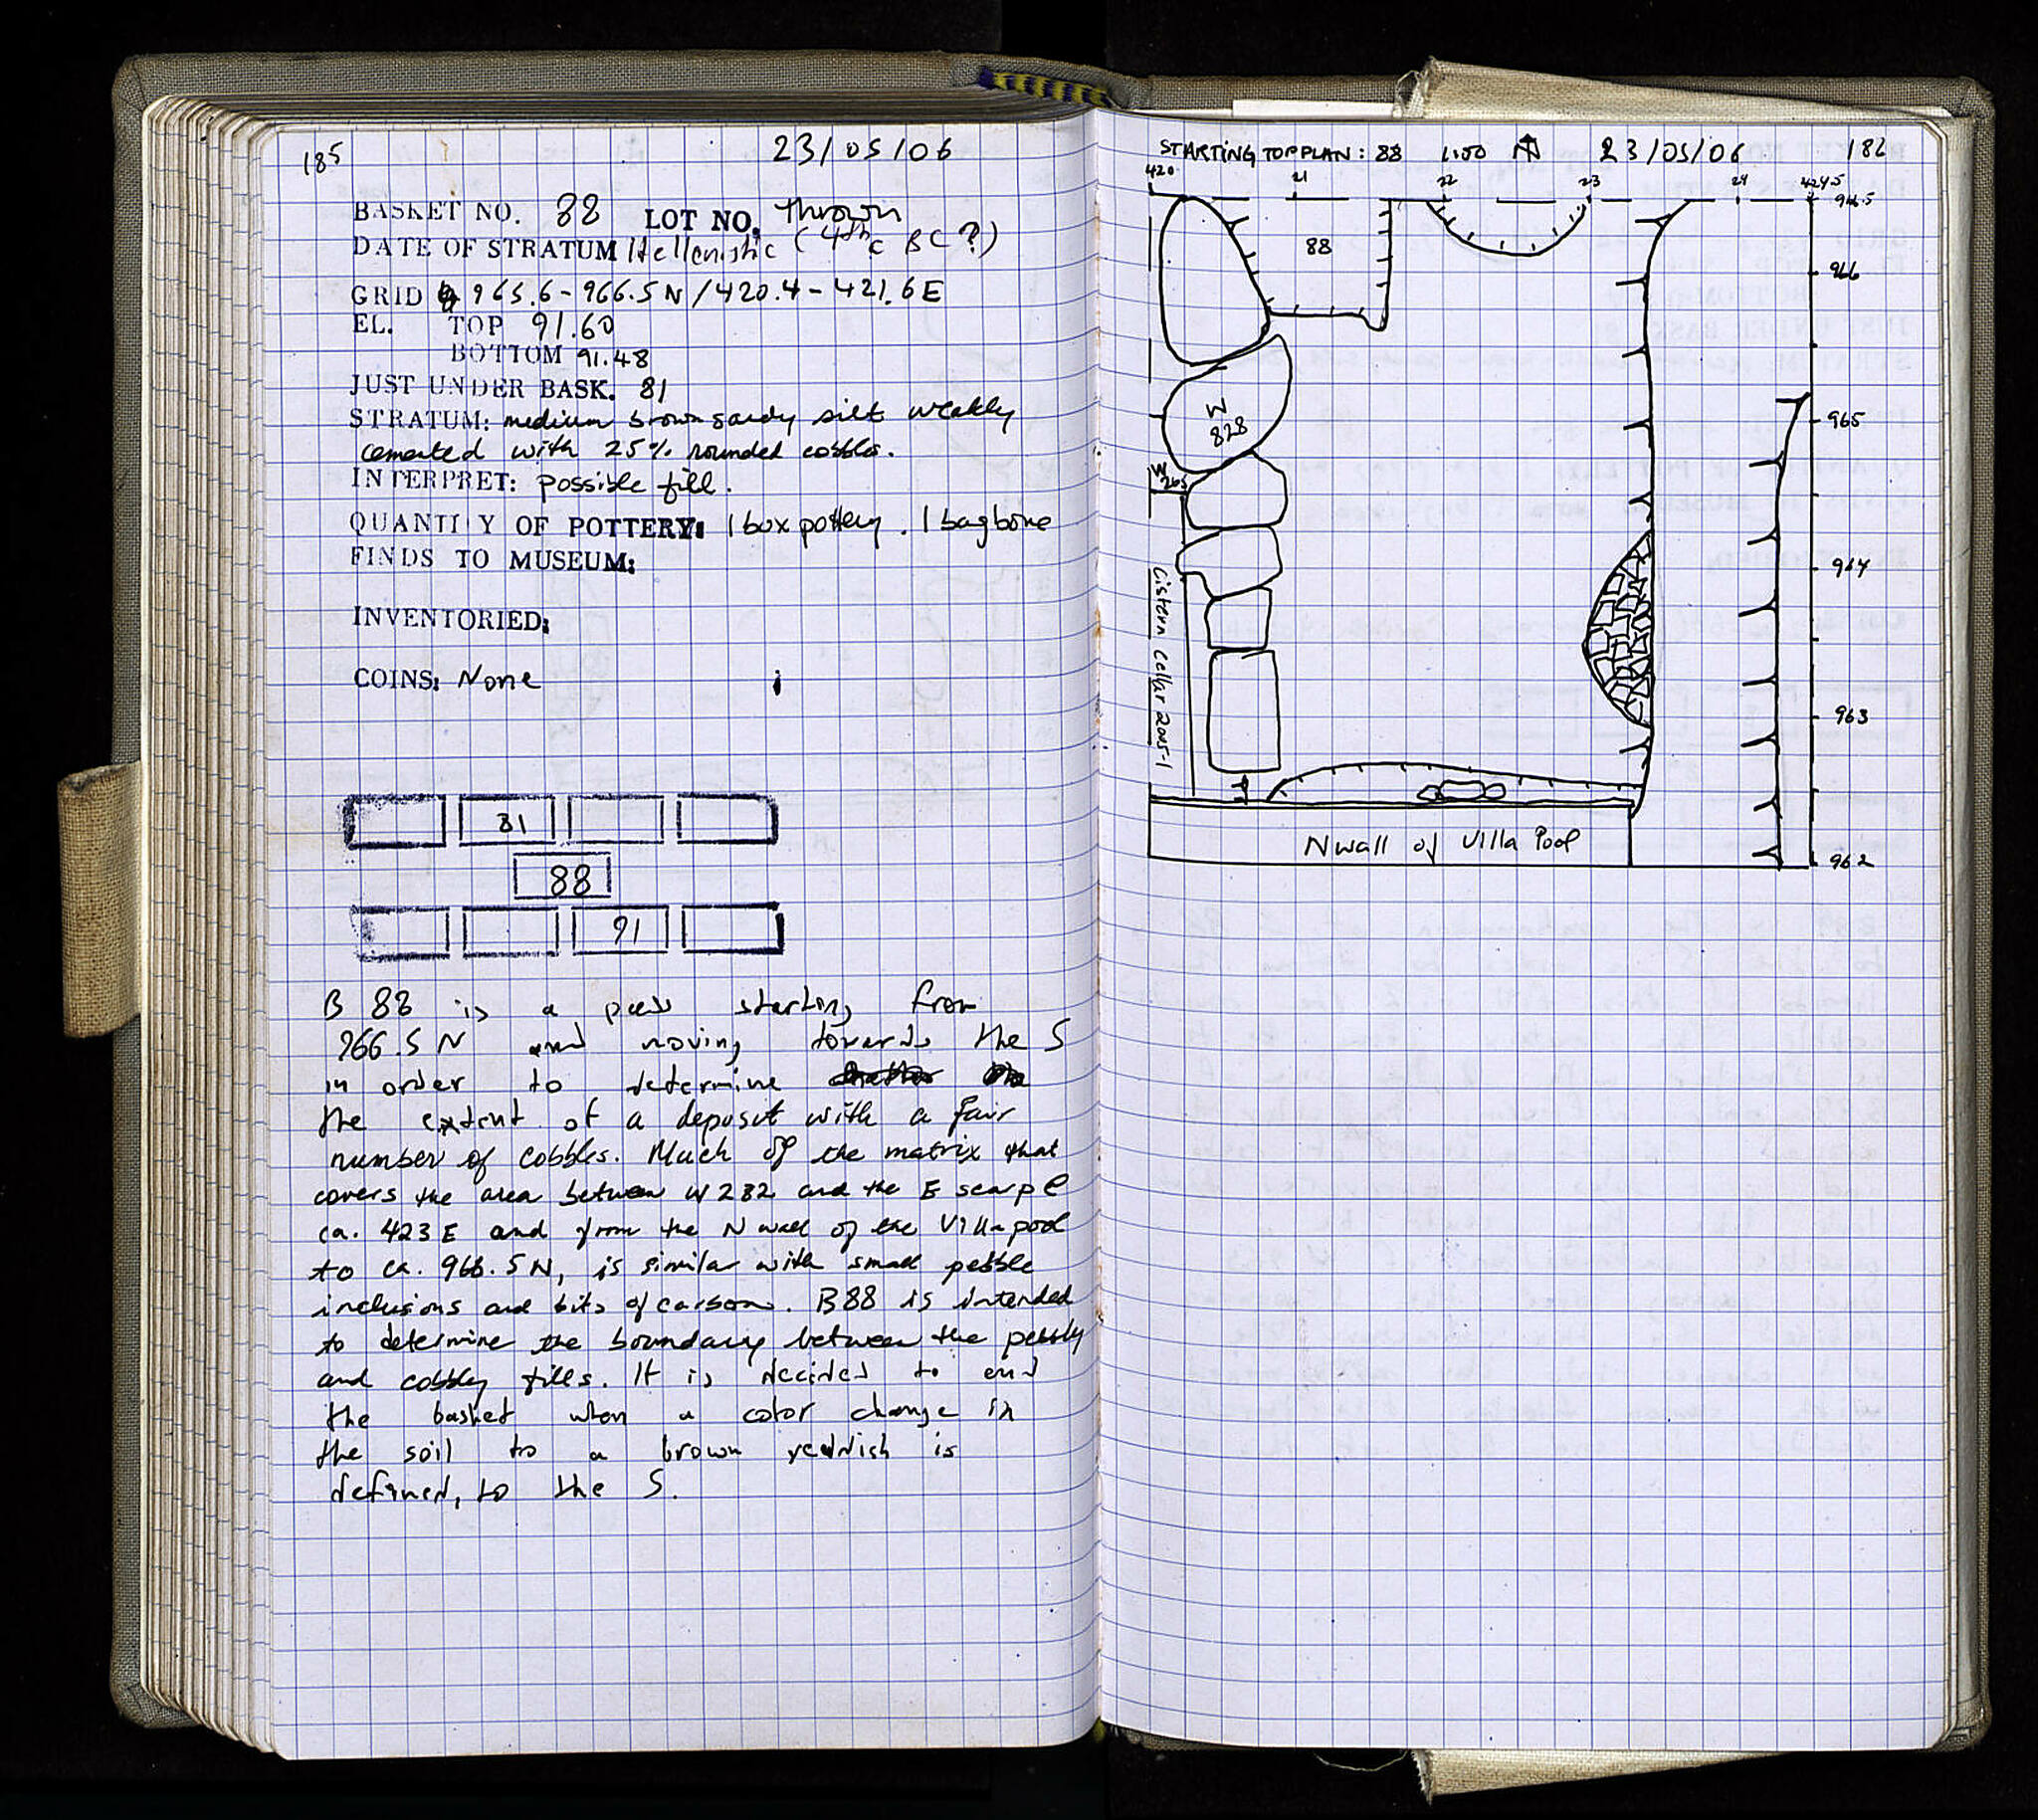 185
23/05/06
BASKET NO. 88 LOT NO. thrown
DATE OF STRATUM Hellenistic (4th c BC ?)
GRID 965.6-966.5 N / 420.4-421.6 E
EL. TOP 91.60
BOTTOM 91.48
JUST UNDER BASK. 81
STRATUM: medium brown sandy silt weakly
cemented with 25% rounded cobbles.
INTERPRET: possible fill.
QUANTITY OF POTTERY: 1 box pottery. 1 bag bone
FINDS TO MUSEUM:
INVENTORIED:
COINS: None
81
88
91
B 88 is a pass starting from
966.5 N and moving towards the S
in order to determine
the extent of a deposit with a fair
number of cobbles. Much of the matrix that
covers the area between W 282 and the E scarp @
ca. 423 E and from the N wall of the Villa pool
to ca. 966.5 N, is similar with small pebble
inclusions and bits of carbon. B88 is intended
to determine the boundary between the pebbly
and cobbly fills. It is decided to end
the basket when a color change in
the soil to a brown reddish is
defined, to the S.
STARTING TOP PLAN: 88 1:50 N 23/05/06 186
420 21 22 23 24 424.5
966.5
88
966
W
828
965
W
265
964
Cistern Cellar 2005-1
963
N wall of Villa Pool
962